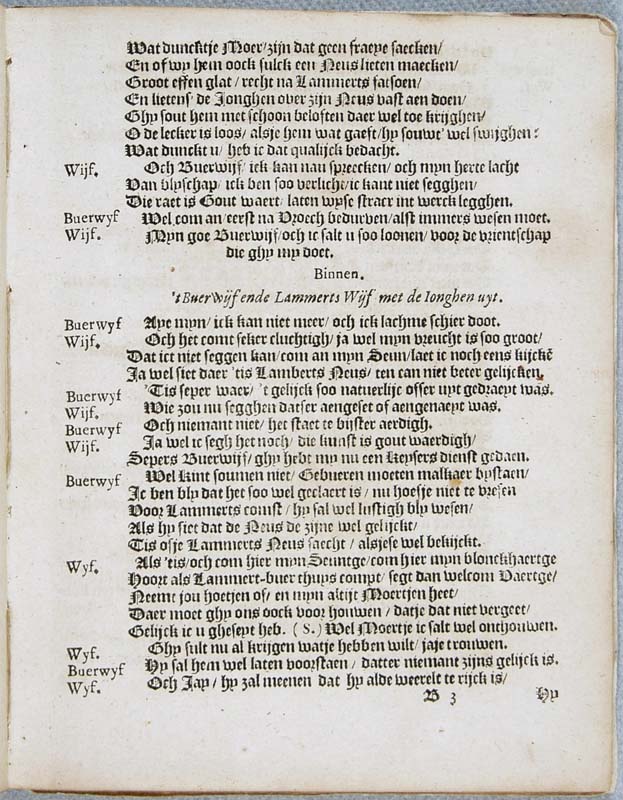 Wat duncktje Moer/ zijn dat geen fraeye saecken/
En of wy hem oock sulck een Neus lieten maecken/
Groot effen glat/ recht na Lammerts fatsoen/
En lietens' de Jonghen over zijn Neus vast aen doen/
Ghy sout hem met schoon beloften daer wel toe krijghen/
O de lecker is loos/ alsje hem wat gaeft/ hy souwt' wel swijghen:
Wat dunckt u/ heb ic dat qualijck bedacht.
Wijf. Och Buerwijf/ ick kan nau spreecken/ och myn herte lacht
Van blyschap/ ick ben soo verlicht/ ic kant niet segghen/
Die raet is Gout waert/ laten wyse stracx int werck legghen.
Buerwyf Wel com an/ eerst na Vroech bedurven/ alst immers wesen moet.
Wijf. Myn goe Buerwijf/ och ic salt u soo loonen/ voor de vrientschap
die ghy my doet.
Binnen.
't Buerwijf ende Lammerts Wijf met de Ionghen uyt.
Buerwyf Aye myn/ ick kan niet meer/ och ick lachme schier doot.
Wijf. Och het comt seker cluchtigh/ ja wel myn vreucht is soo groot/
Dat ict niet seggen kan/ com an myn Seun/ laet ic noch eens kijckē
Ja wel siet daer 'tis Lamberts Neus/ ten can niet beter gelijcken.
Buerwyf 'Tis seper waer/ 't gelijck soo natuerlijc offer uyt gedraeyt was.
Wijf. Wie zou nu segghen datser aengeset of aengenaeyt was.
Buerwyf Och niemant niet/ het staet te bijster aerdigh.
Wijf. Ja wel ic segh het noch/ die kunst is gout waerdigh/
Sepers Buerwijf/ ghy hebt my nu een Keysers dienst gedaen.
Buerwyf Wel kint souwen niet/ Gebueren moeten malkaer bystaen/
Ic ben bly dat het soo wel geclaert is/ nu hoesje niet te vresen
Voor Lammerts comst/ hy sal wel lustigh bly wesen/
Als hy siet dat de Neus de zijne wel gelijckt/
Tis ofje Lammerts Neus saecht/ alsjese wel bekijckt.
Wyf. Als 'eis/ och com hier myn Seuntge/ com hier myn blonckhaertge
Hoort als Lammert-buer thuys compt/ segt dan welcom Vaertge/
Neemt jou hoetjen of/ en myn altijt Moertjen heet/
Daer moet ghy ons oock voor houwen/ datje dat niet vergeet/
Gelijck ic u gheseyt heb. (S.) Wel Moertje ic salt wel onthouwen.
Wyf. Ghy sult nu al krijgen watje hebben wilt/ jaje trouwen.
Buerwyf Hy sal hem wel laten voorstaen/ datter niemant zijns gelijck is.
Wyf. Och Jay/ hy zal meenen dat hy alde weerelt te rijck is/
B 3 Hy